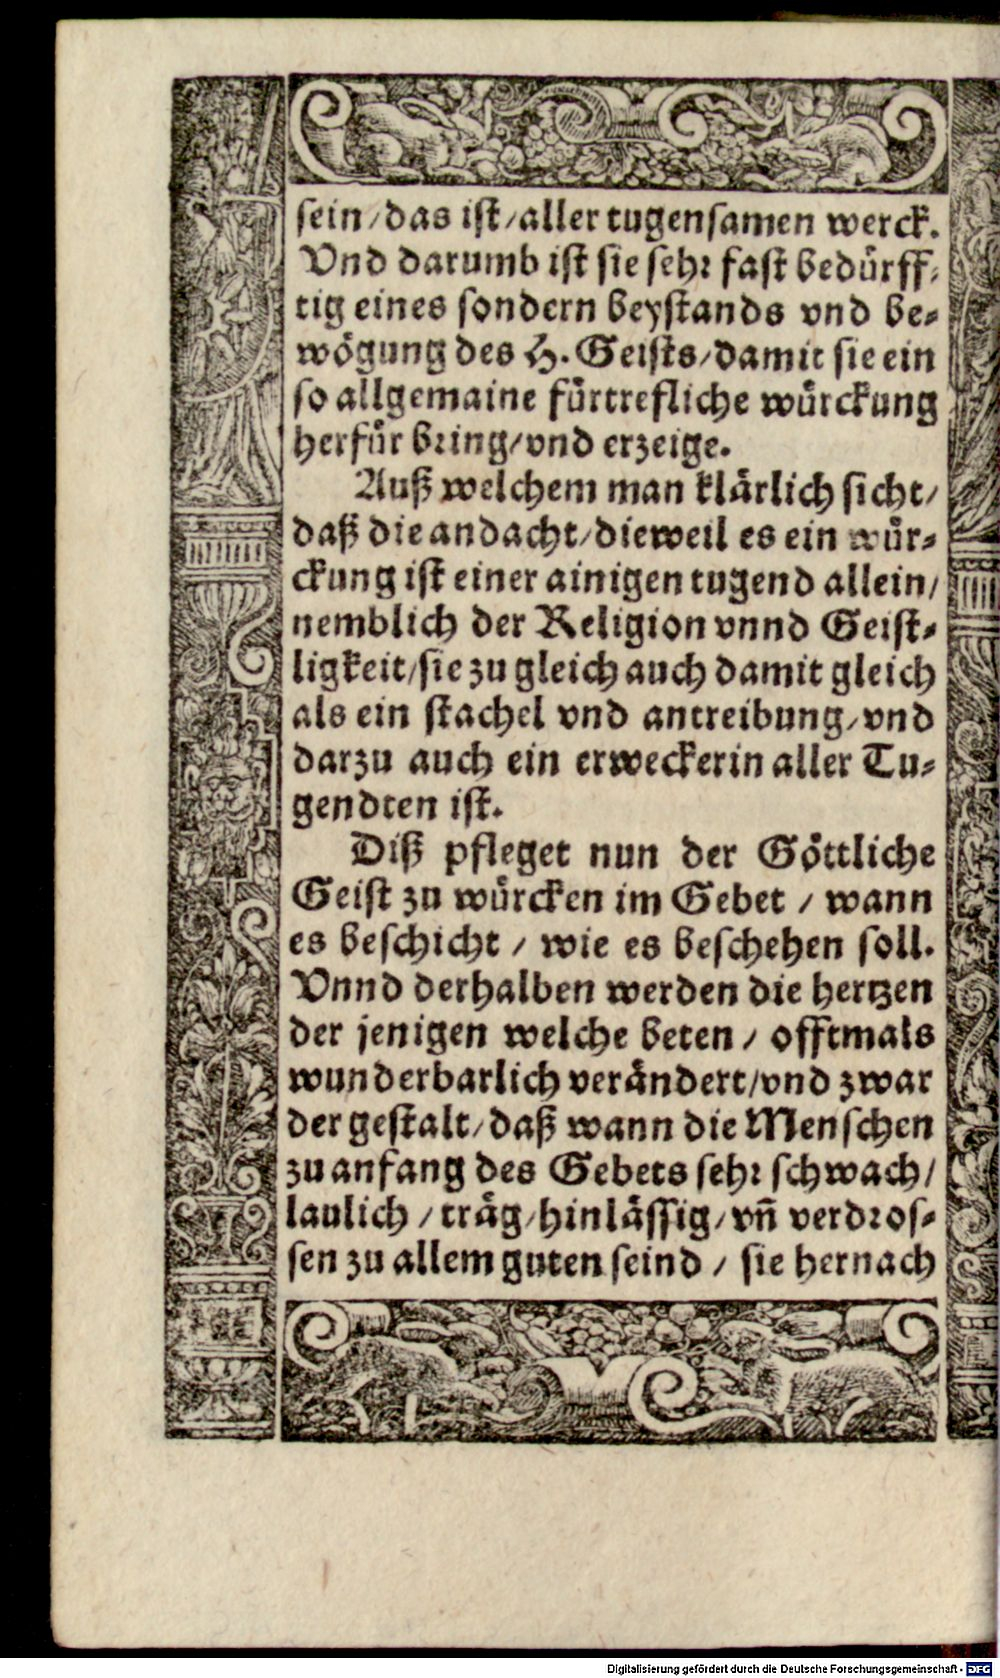 sein/das ist/aller tugensamen werck.
Vnd darumb ist sie sehr fast bedürff-
tig eines sondern beystands vnd be-
wögung des H. Geists/damit sie ein
so allgemaine fürtrefliche würckung
herfür bring/vnd erzeige.
Auß welchem man klärlich sicht/
daß die andacht/dieweil es ein wür-
ckung ist einer ainigen tugend allein/
nemblich der Religion vnnd Geist-
ligkeit/sie zu gleich auch damit gleich
als ein stachel vnd antreibung/vnd
darzu auch ein erweckerin aller Tu-
gendten ist.
Diß pfleget nun der Göttliche
Geist zu würcken im Gebet / wann
es beschicht / wie es beschehen soll.
Vnnd derhalben werden die hertzen
der jenigen welche beten / offtmals
wunderbarlich verändert/vnd zwar
der gestalt/daß wann die Menschen
zu anfang des Gebets sehr schwach/
laulich / träg/hinlässig/vñ verdros-
sen zu allem guten seind / sie hernach
Digitalisierung gefördert durch die Deutsche Forschungsgemeinschaft - DFG